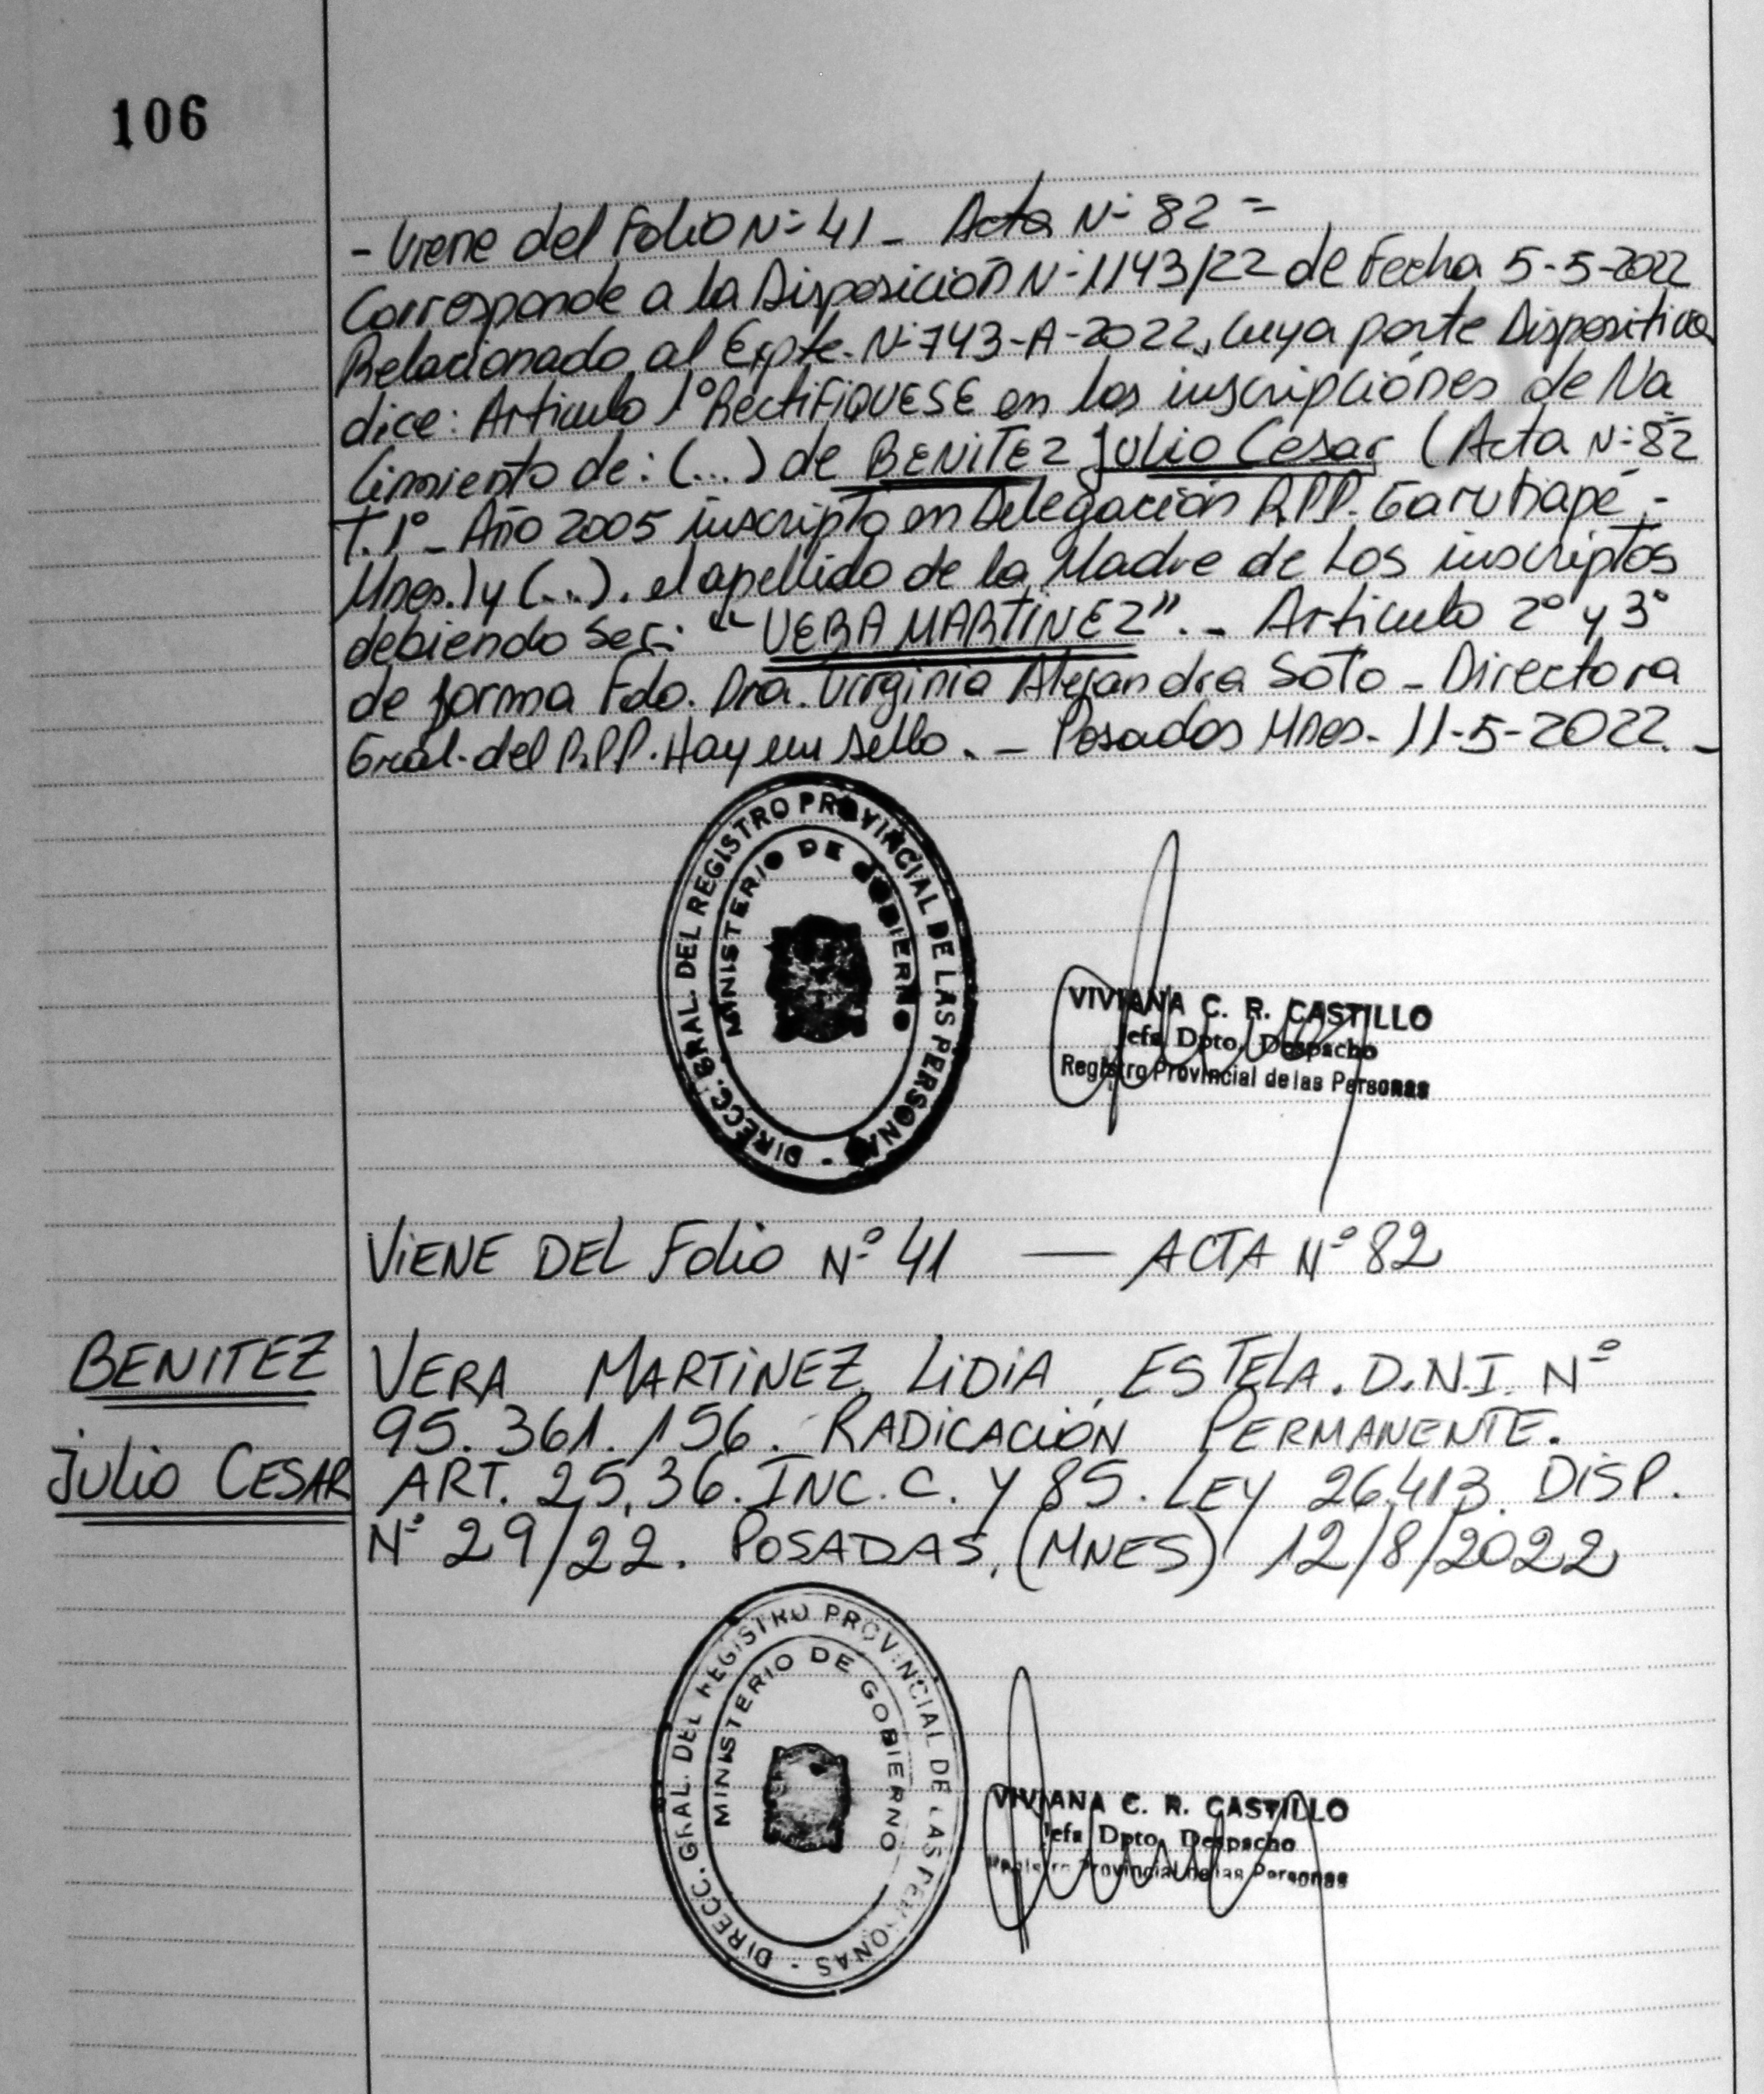 106
- Viene del Folio N= 41 - Acta N= 82 =
Corresponde a la Disposición N= 1143/22 de Fecha 5-5-2022
Relacionado al Expte. N= 743-A-2022, cuya parte Dispositiva
dice: Articulo 1° RECTIFIQUESE en las inscripciones de Na
cimiento de: (...) de BENITEZ Julio Cesar (Acta N= 82
T. 1° - Año 2005 inscripto en Delegación R.P.P. Garuhapé -
Mnes.) y (...). el apellido de la Madre de los inscriptos
debiendo ser: "VERA MARTINEZ". - Articulo 2° y 3°
de forma Fdo. Dra. Virginia Alejandra Soto - Directora
Gral. del R.P.P. Hay un sello. - Posadas Mnes. 11-5-2022. -
DIRECC. GRAL. DEL REGISTRO PROVINCIAL DE LAS PERSONAS -
MINISTERIO DE GOBIERNO
VIVIANA C. R. CASTILLO
Jefa Dpto. Despacho
Registro Provincial de las Personas
VIENE DEL Folio Nº 41 — ACTA Nº 82
BENITEZ
Julio CESAR
VERA MARTINEZ LIDIA ESTELA. D.N.I. Nº
95.361.156. RADICACIÓN PERMANENTE.
ART. 25, 36. INC. C. Y 85. LEY 26.413. DISP.
Nº 29/22. POSADAS, (MNES) 12/8/2022
DIRECC. GRAL. DEL REGISTRO PROVINCIAL DE LAS PERSONAS -
MINISTERIO DE GOBIERNO
VIVIANA C. R. CASTILLO
Jefa Dpto. Despacho
Registro Provincial de las Personas